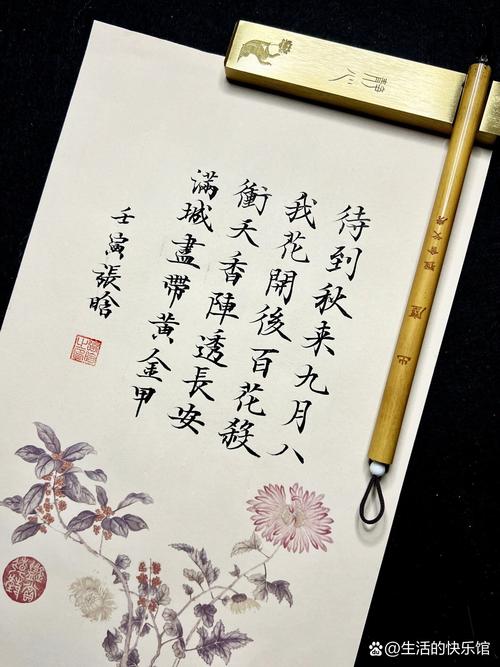 待到秋来九月八
我花開後百花殺
衝天香陣透長安
滿城盡帶黄金甲
壬寅張晗
@生活的快乐馆